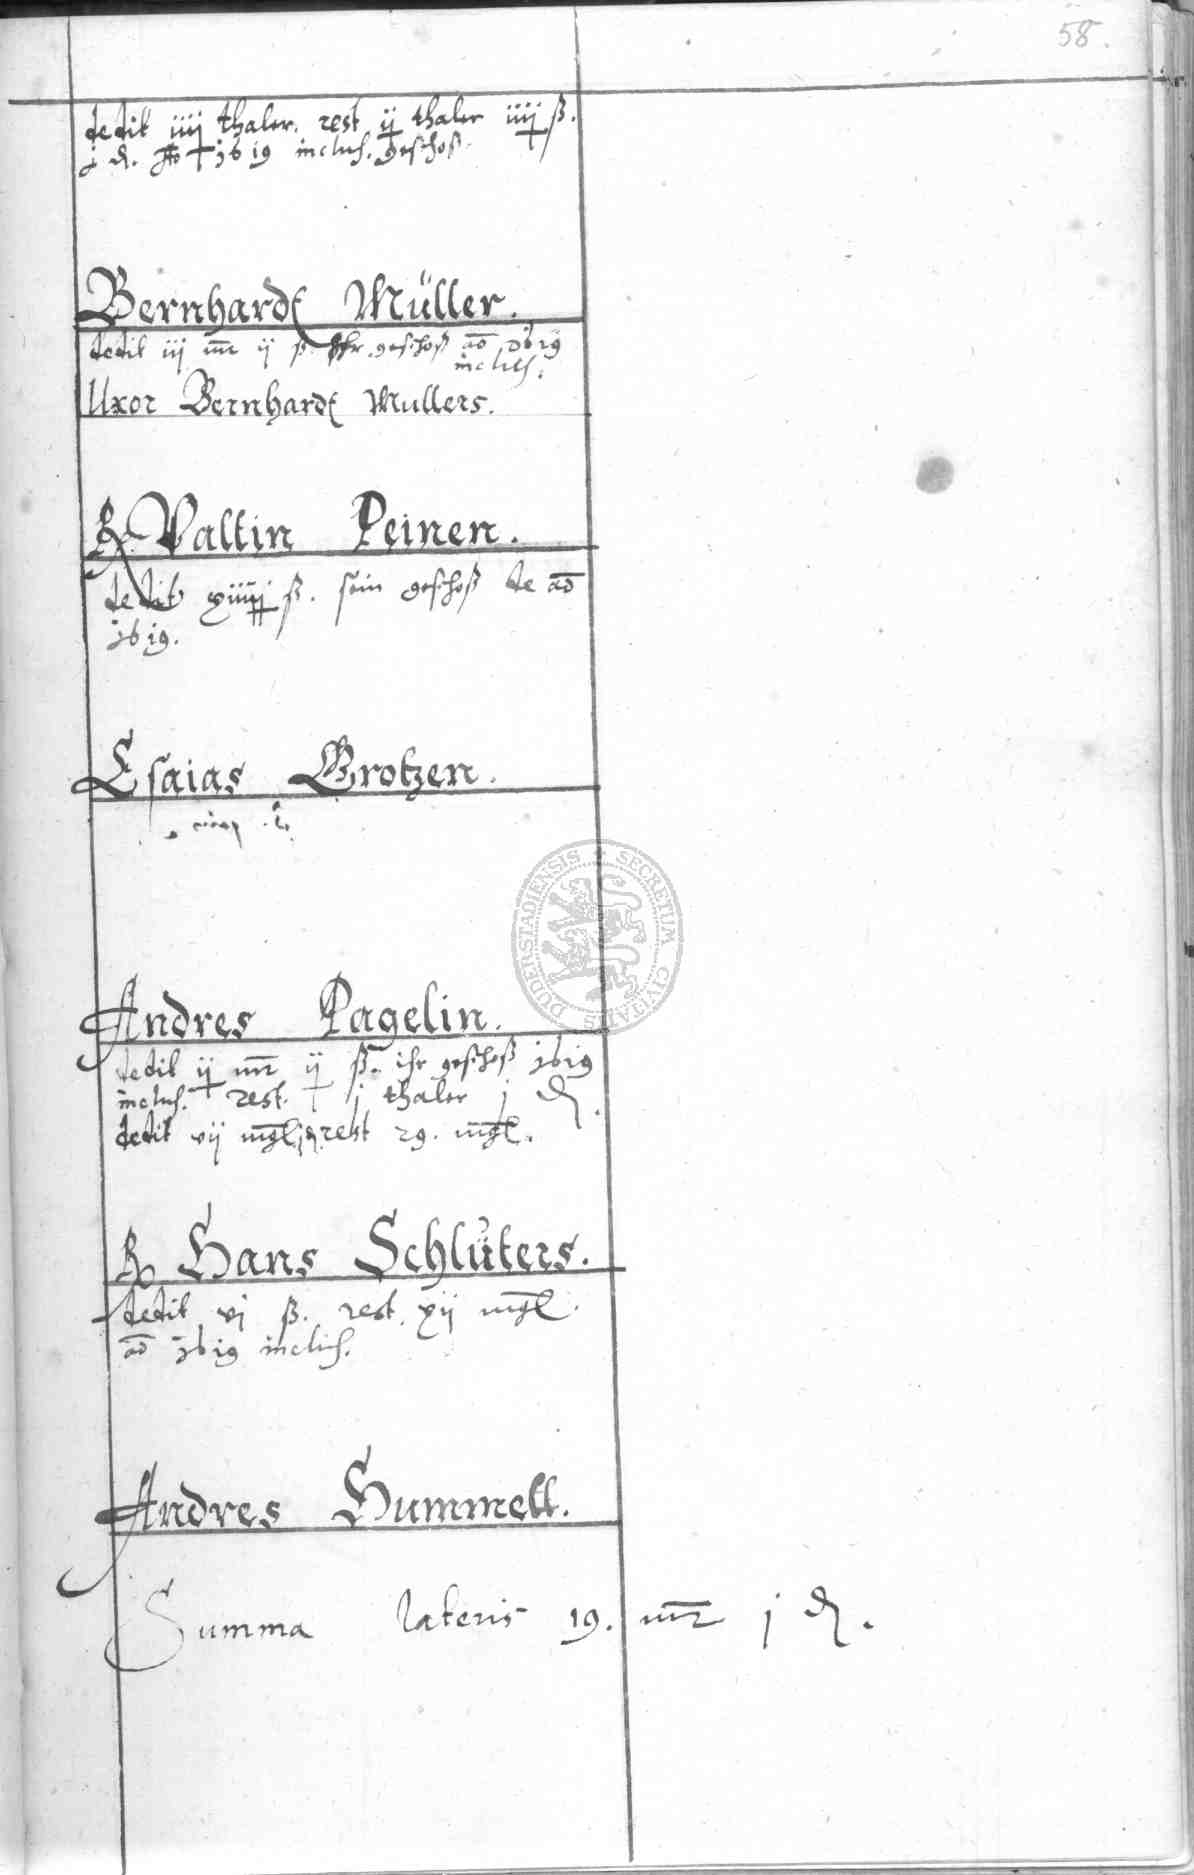 58.
dedit iiij thaler. rest ij thaler iiij ß.
j ₰. Ao 1619 inclus. geschoß.
Bernhardt Müller.
dedit iij mr ij ß. ihr geschoß ao 1619
inclus.
Uxor Bernhardt Mullers.
Valtin Peinen.
dedit xiiij ß. sein geschoß de ao
1619.
Esaias Grotzen.
Andres Pagelin.
dedit ij mr ij ß. ihr geschoß 1619
inclus. rest. j thaler j ₰.
dedit vij mgl rest 29. mgl.
Hans Schlüters.
dedit vj ß. rest. xij mgl.
ao 1619 inclus.
Andres Hummell.
Summa lateris 19. mr j ₰.
SECRETUM CIVITATIS DUDERSTADIENSIS